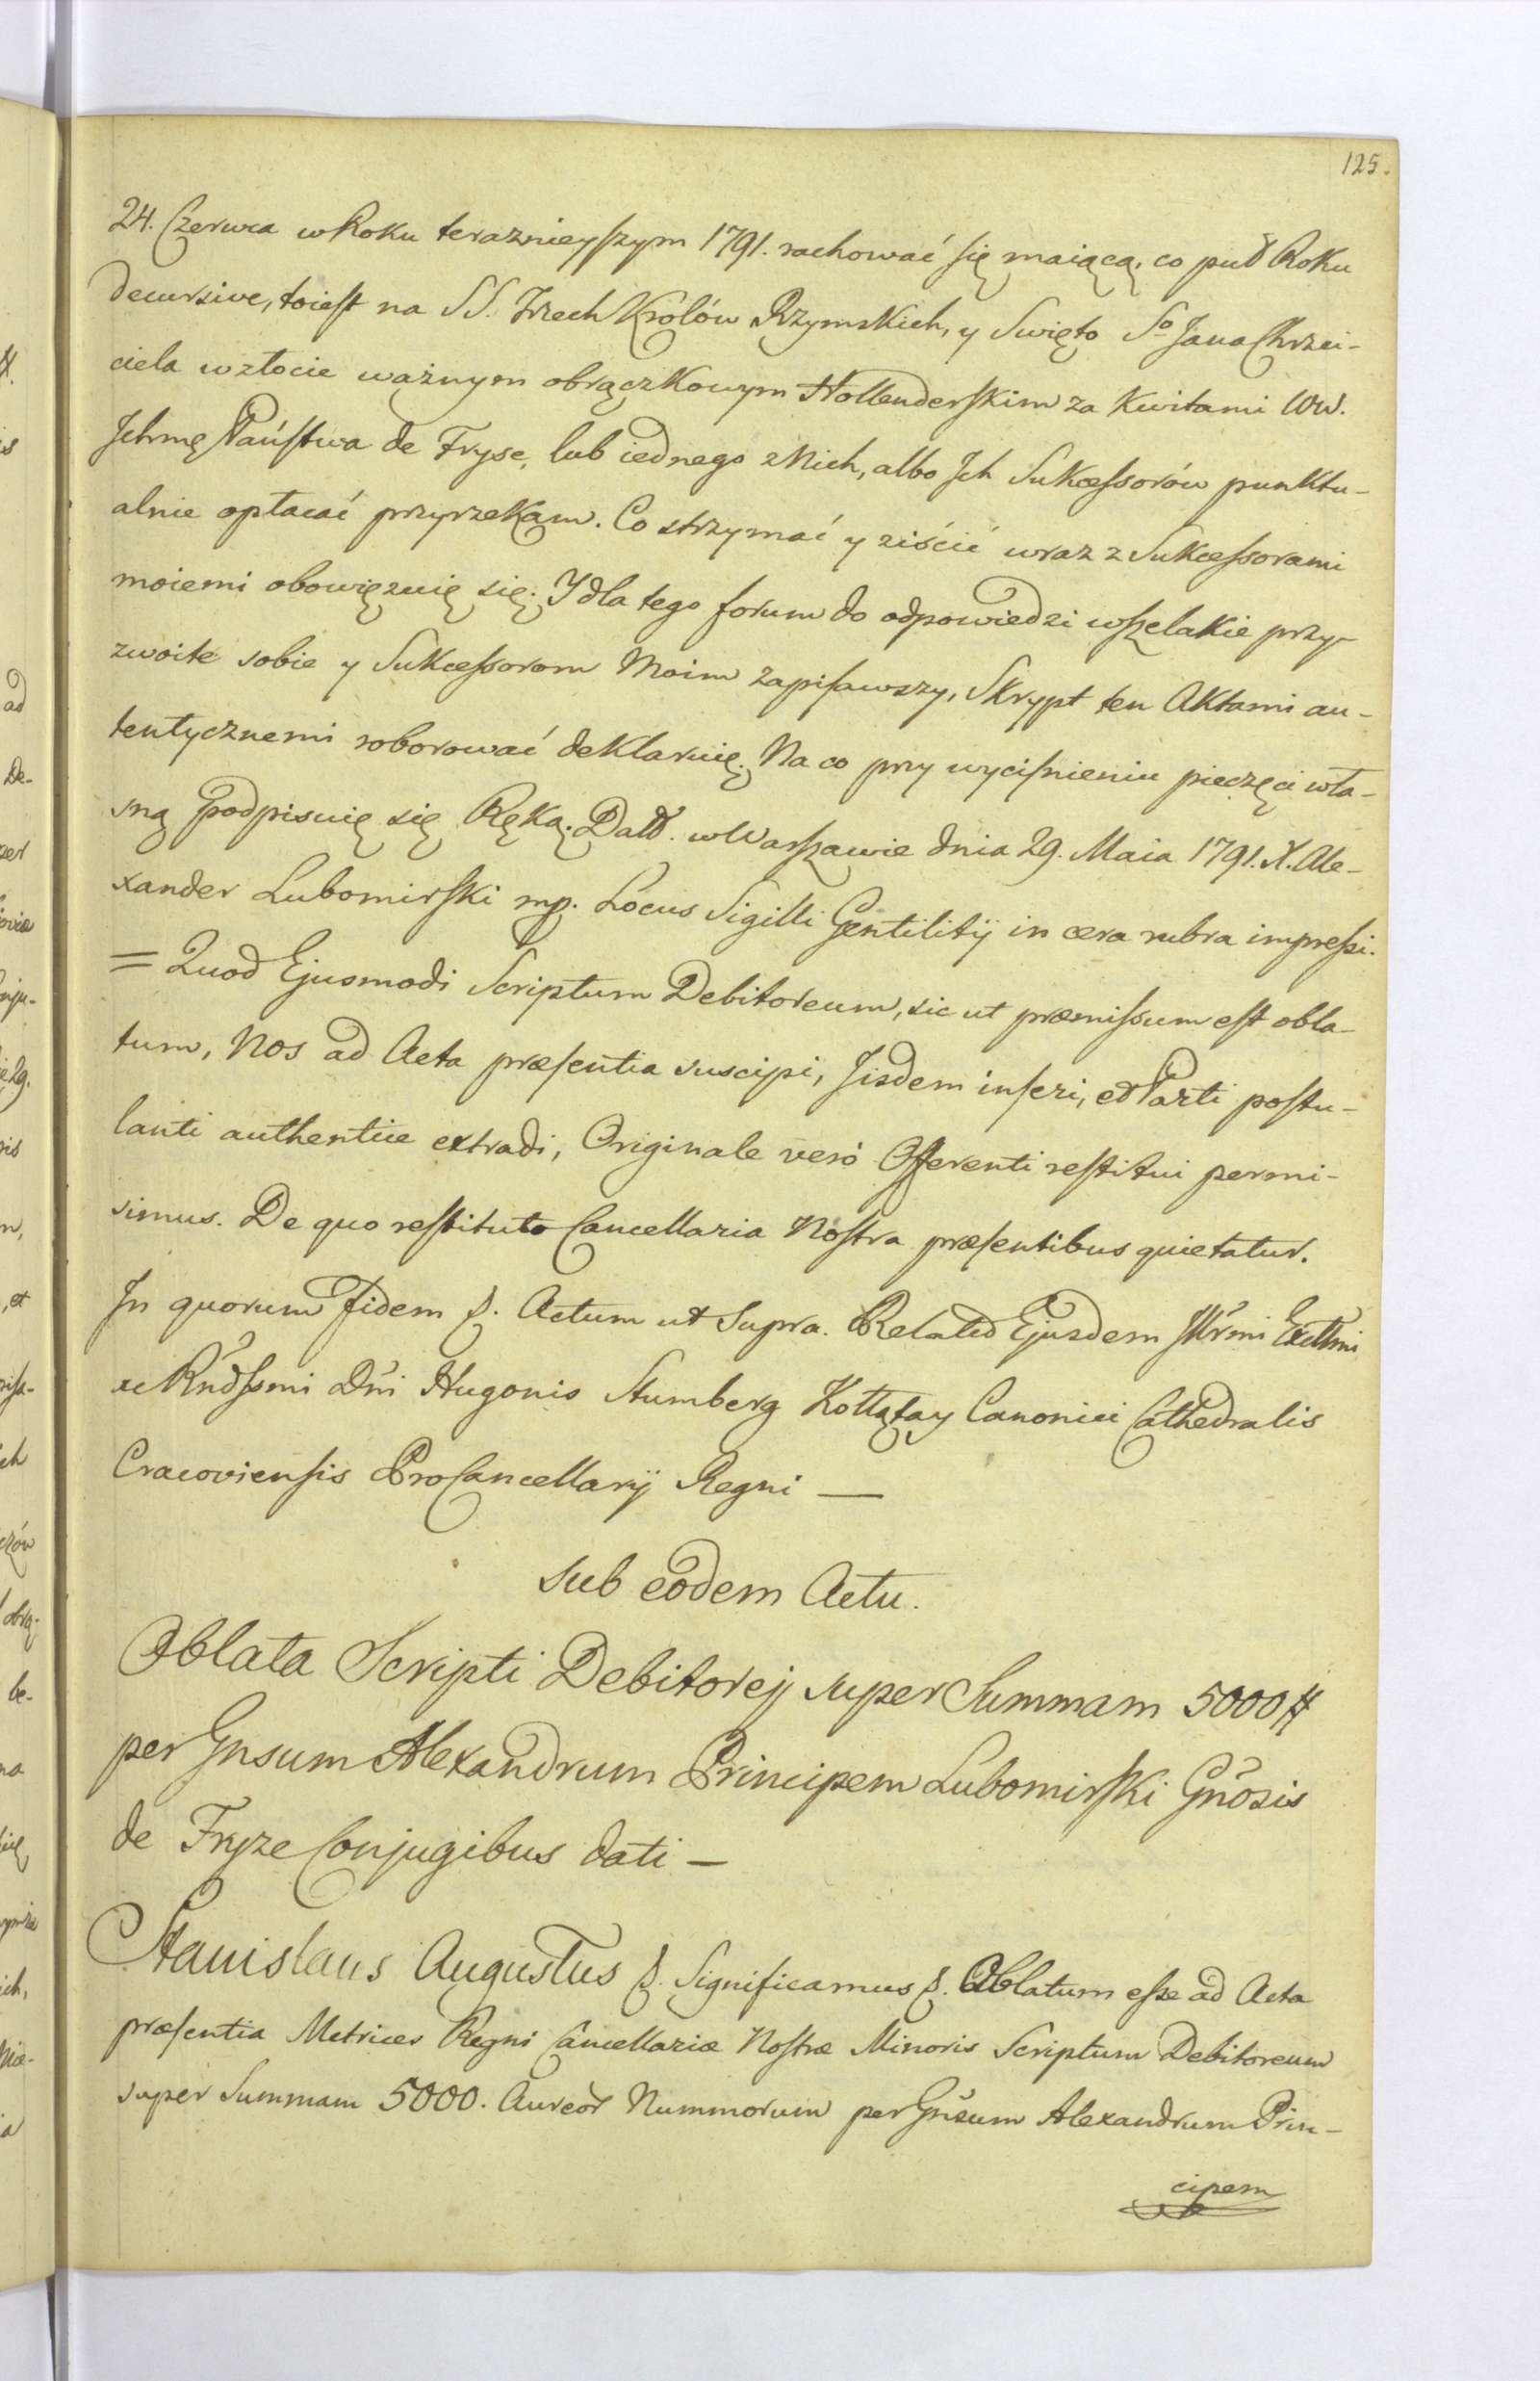 125.
24. Czerwca w Roku teraznieyszym 1791. rachować się maiącą, co puł Roku
decursive, toiest na SS. Trzech Królów Rzymskich, y Swięto So Jana Chrzci-
ciela w złocie ważnym obrączkowym Hollenderskim za Kwitami WW.
Ichmę Państwa de Fryse, lub iednego z Nich, albo Ich Sukcessorów punktu-
alnie opłacać przyrzekam. Co strzymać y ziścić wraz z Sukcessorami
moiemi obowięzuię się. Y dla tego forum do odpowiedzi wszelakie przy-
zwoite sobie y Sukcessorom Moim zapisawszy, Skrypt ten Aktami au-
tentycznemi roborować deklaruię. Na co przy wyciśnieniu pieczęci wła-
sną podpisuię się Ręką. Datt. w Warszawie dnia 29. Maia 1791. X. Ale-
xander Lubomirski mp. Locus Sigilli Gentilitij in cera rubra impressi.
= Quod Ejusmodi Scriptum Debitoreum, sic ut præmissum est obla-
tum, Nos ad Acta præsentia suscipi, Iisdem inseri, et Parti postu-
lanti authentice extradi, Originale verò Offerenti restitui permi-
simus. De quo restituto Cancellaria Nostra præsentibus quietatur.
In quorum Fidem &. Actum ut Supra. Relatio Ejusdem Illr̃mi Excllmi
ac Rñdssmi Dñi Hugonis Stumberg Kołłątay Canonici Cathedralis
Cracoviensis ProCancellarij Regni —
Sub eodem Actu.
Oblata Scripti Debitorej super Summam 5000 #
per Gnsum Alexandrum Principem Lubomirski Gñosis
de Fryze Conjugibus dati —
Stanislaus Augustus &. Significamus &. Oblatum esse ad Acta
præsentia Metrices Regni Cancellariæ Nostræ Minoris Scriptum Debitoreum
super Summam 5000. Aureor̃ Nummorum per Gñsum Alexandrum Prin-
cipem